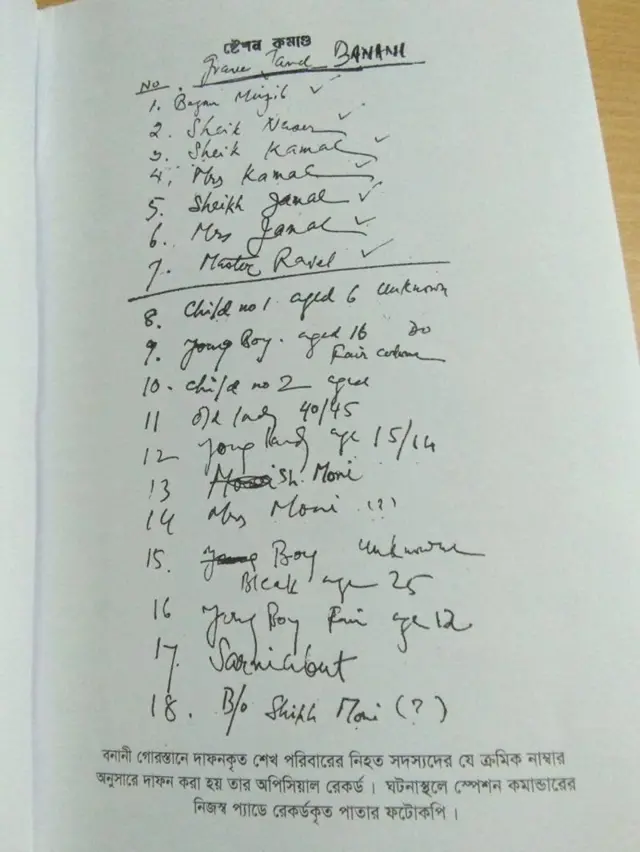 ষ্টেশন কমাণ্ড
Grave Yard BANANI
NO
1. Begam Mujib ✓
2. Sheik Naser ✓
3. Sheik Kamal ✓
4. Mrs Kamal ✓
5. Sheikh Jamal ✓
6. Mrs Jamal ✓
7. Master Rasel ✓
8. Child no 1 aged 6 unknown
9. Young Boy. aged 16 Do
Fair
10. child no 2 aged
11 old lady 40/45
12 Young lady age 15/14
13 Sh. Moni
14 Mrs Moni (?)
15. Boy unknown
Black age 25
16 Young Boy Fair age 12
17. Sarniabut
18. B/o Shikh Moni (?)
বনানী গোরস্তানে দাফনকৃত শেখ পরিবারের নিহত সদস্যদের যে ক্রমিক নাম্বার
অনুসারে দাফন করা হয় তার অপিসিয়াল রেকর্ড । ঘটনাস্থলে স্পেশন কমান্ডারের
নিজস্ব প্যাডে রেকর্ডকৃত পাতার ফটোকপি ।